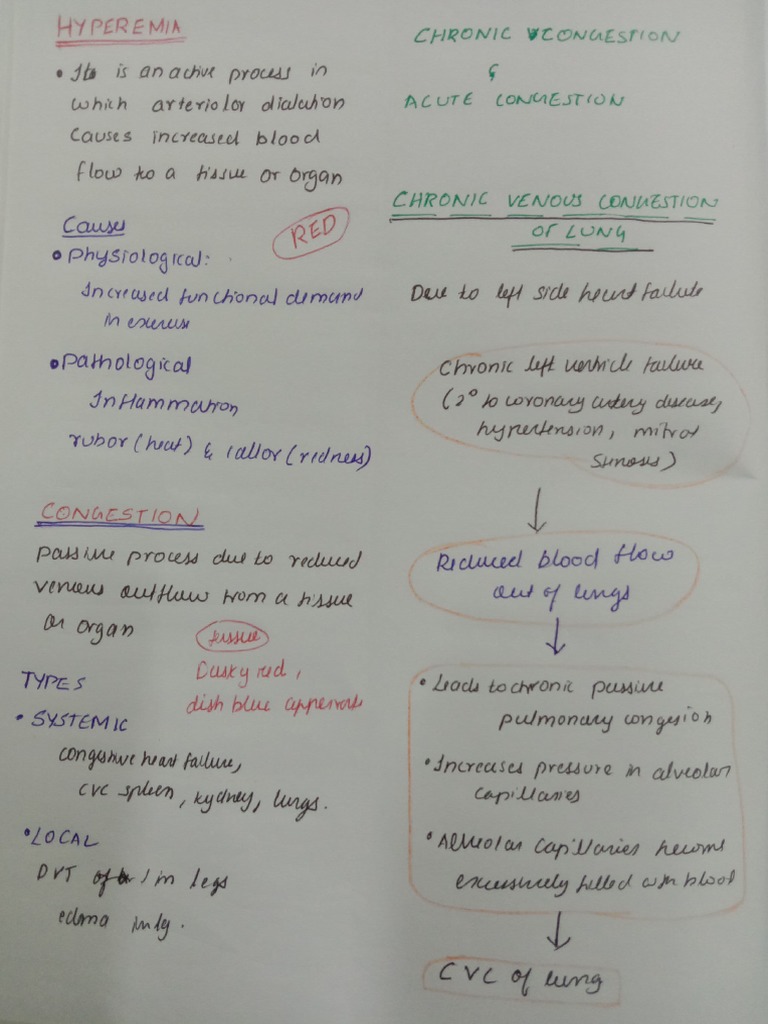 HYPEREMIA
• It is an active process in
which arteriolor dialation
causes increased blood
flow to a tissue or organ
Causes
RED
• Physiological:
Increased functional demand
in exercise
• Pathological
Inflammation
rubor (heat) & callor (redness)
CONGESTION
passive process due to reduced
venous outflow from a tissue
or organ
tissue
Dusky red,
dish blue
TYPES
• SYSTEMIC
congestive heart failure,
CVC spleen, kydney, lungs.
• LOCAL
DVT in legs
edma in leg.
CHRONIC CONGESTION
&
ACUTE CONGESTION
CHRONIC VENOUS CONGESTION
OF LUNG
Due to left side heart failure
Chronic left ventricle failure
(2° to coronary artery disease,
hypertension, mitral
stenosis)
↓
Reduced blood flow
out of lungs
↓
• Leads to chronic passive
pulmonary congesion
• Increases pressure in alveolar
capillaries
• Alveolar capillaries become
excessively filled with blood
↓
CVC of lung